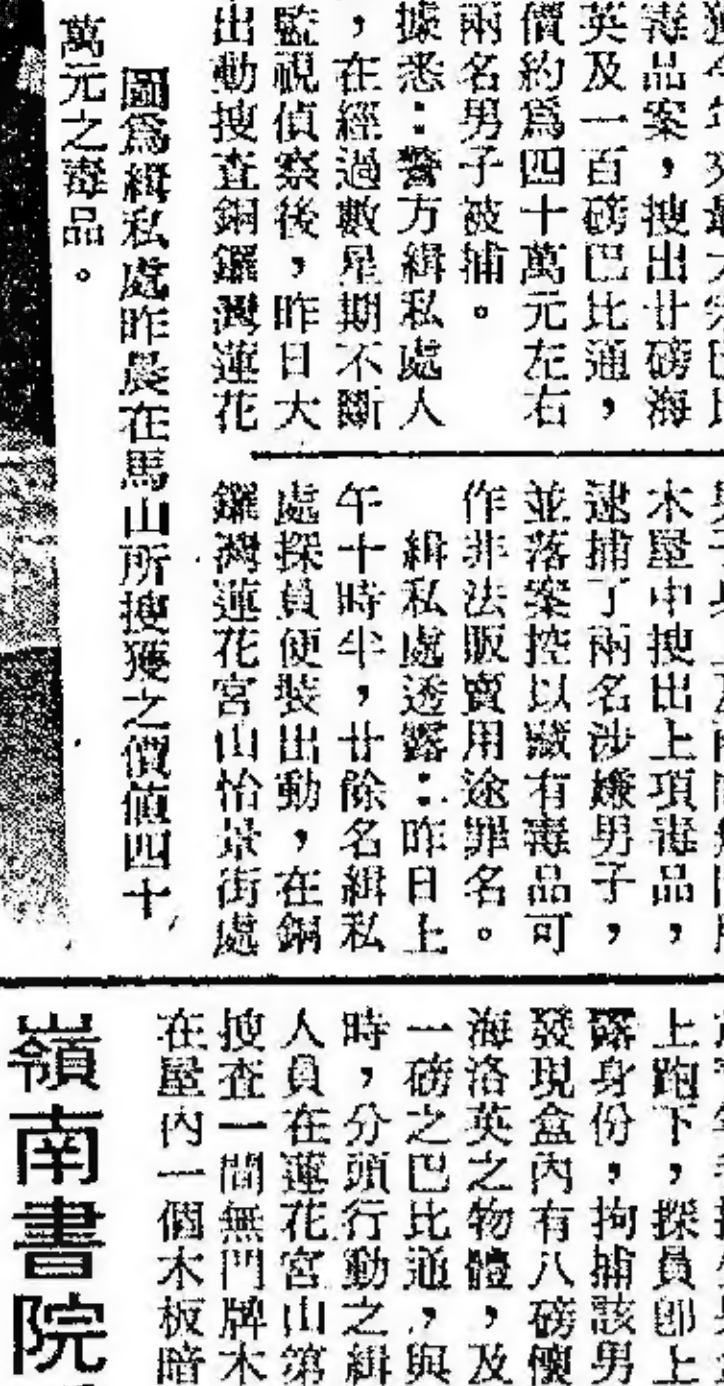 毒品案，搜出廿磅海
英及一百磅巴比通，
價約爲四十萬元左右
兩名男子被捕。
據悉：警方緝私處人
，在經過數星期不斷
監視偵察後，昨日大
出動搜查銅鑼灣蓮花
圖爲緝私處昨晨在馬山所搜獲之價值四十
萬元之毒品。
木屋中搜出上項毒品，
逮捕了兩名涉嫌男子，
並落案控以藏有毒品可
作非法販賣用途罪名。
緝私處透露：昨日上
午十時半，廿餘名緝私
處探員便裝出動，在銅
鑼灣蓮花宮山怡景街處
上跑下，探員卽上
露身份，拘捕該男
發現盒內有八磅懷
海洛英之物體，及
一磅之巴比通，與
時，分頭行動之緝
人員在蓮花宮山第
搜查一間無門牌木
在屋內一個木板暗
嶺南書院